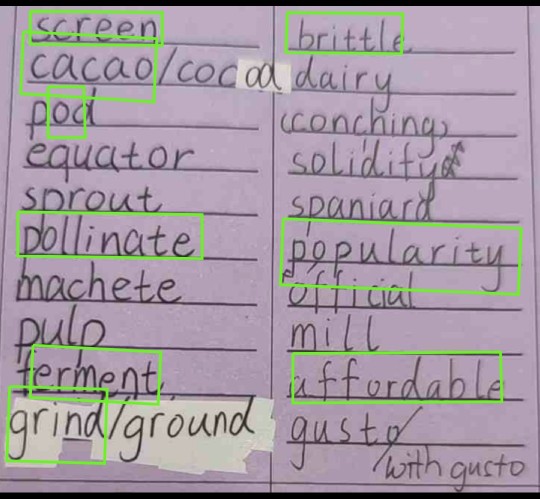 screen
cacao/cocoa
pod
equator
sprout
pollinate
machete
pulp
ferment
grind/ground
brittle
dairy
(conching)
solidity
spaniard
popularity
official
mill
affordable
gusto/
with gusto